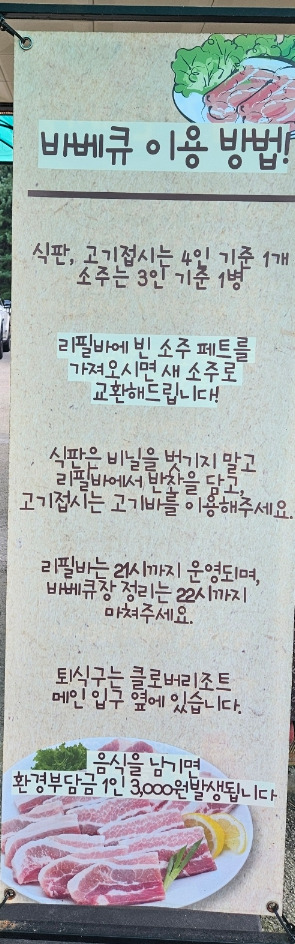 바베큐 이용 방법!
식판, 고기접시는 4인 기준 1개
소주는 3인 기준 1병
리필바에 빈 소주 페트를
가져오시면 새 소주로
교환해드립니다!
식판은 비닐을 벗기지 말고
리필바에서 반찬을 담고,
고기접시는 고기바를 이용해주세요.
리필바는 21시까지 운영되며,
바베큐장 정리는 22시까지
마쳐주세요.
퇴식구는 클로버리조트
메인 입구 옆에 있습니다.
음식을 남기면
환경부담금 1인 3,000원발생됩니다